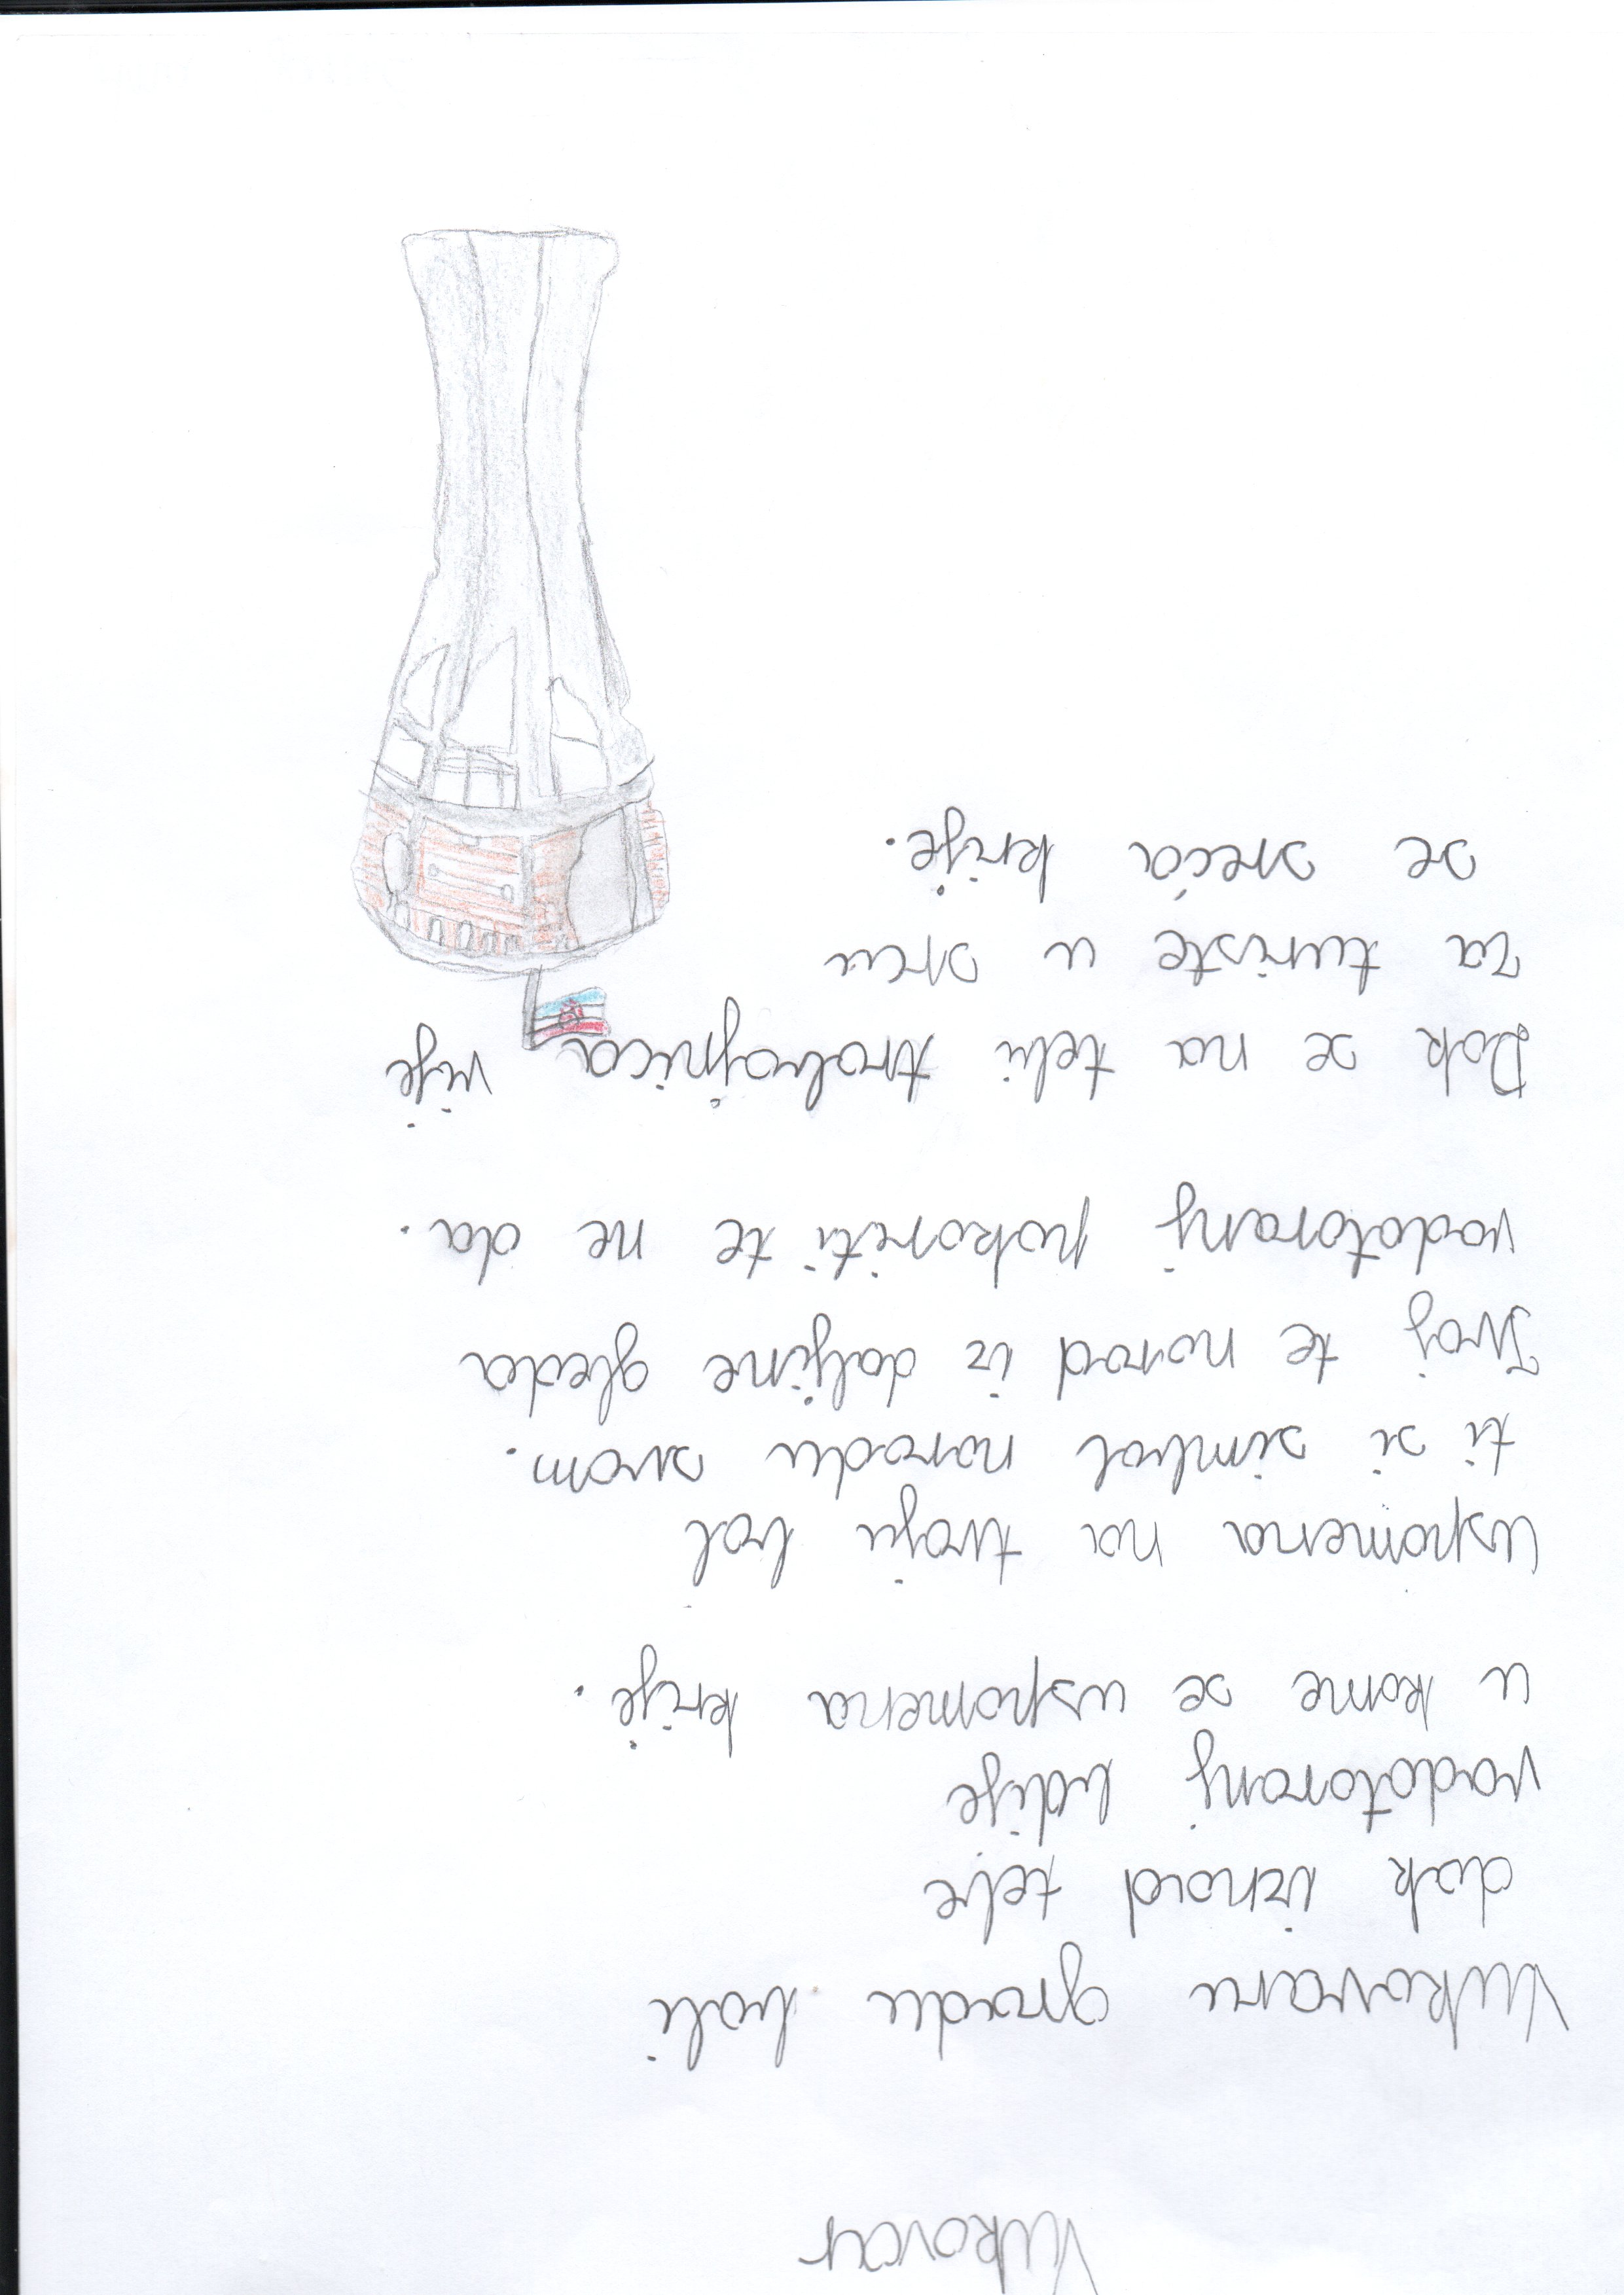 Vukovar
Vukovaru gradu boli
dok iznad tebe
vodotoranj bdije
u kome se uspomena krije.
Uspomena na tvoju bol
ti si simbol narodu svom.
Tvoj te narod iz daljine gleda
vodotoranj pokoriti te ne da.
Dok se na tebi trobojnica vije
za turiste u srcu
se sreća krije.